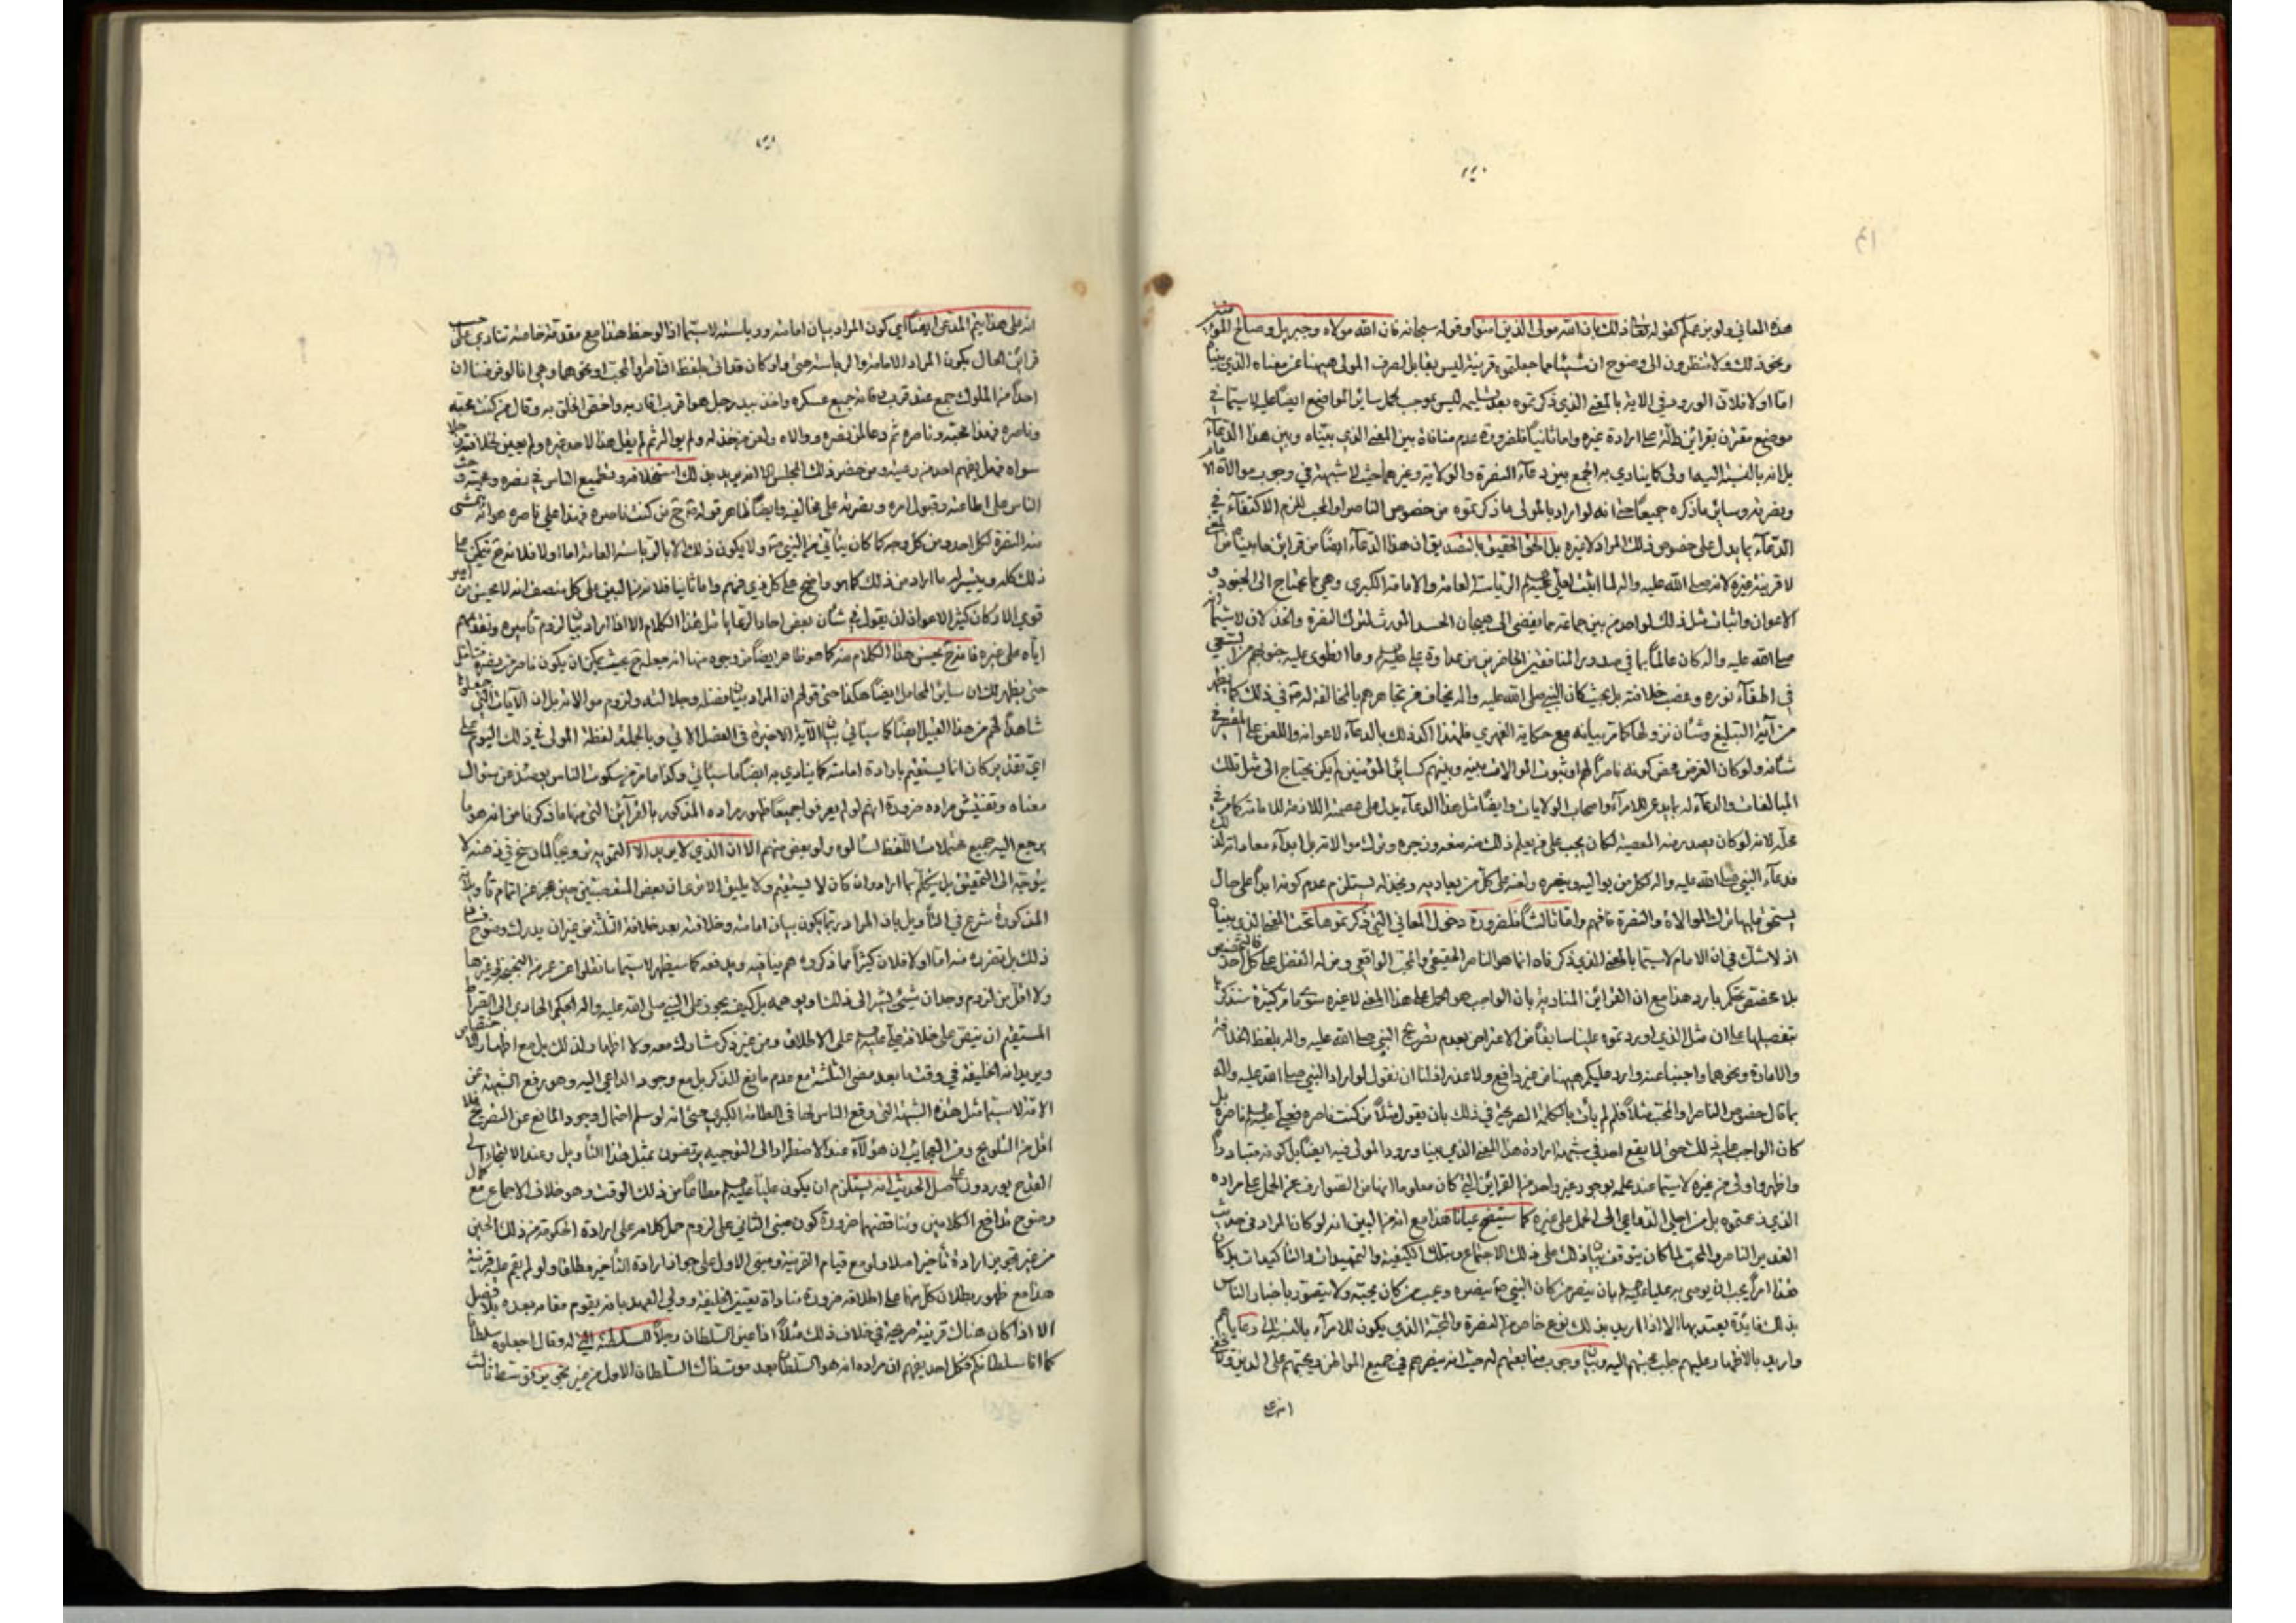 هذه المعاني ولو بزعمكم كقوله تعالى ذلك بان الله مولى الذين امنوا وقوله سبحانه فان الله مولاه وجبريل وصالح المؤمنين
ونحو ذلك ولا تنظرون الى وضوح ان شيئا مما جعلتموه قرينة ليس بقابل لصرف المولى ههنا عن معناه الذي بيناه
اما اولا فلان الورود في الاية بالمعنى الذي ذكرتموه بعد تسليمه ليس بموجب لحمل سائر المواضع ايضا عليه لا سيما في
موضع مقترن بقرائن دالة على ارادة غيره واما ثانيا فلضرورة عدم منافاة بين المعنى الذي بيناه وبين هذا الدعاء
بل انه بالنسبة اليها اولى كما ينادي به الجمع بين دعاء النصرة والولاية وغيرهما حيث لا شبهة في وجوب موالاة الامام
ونصرته وسائر ما ذكره جميعا حتى انه لو اراد بالمولى ما ذكرتموه من خصوص الناصر او المحب للزم الاكتفاء في
الدعاء بما يدل على خصوص ذلك المراد لا غيره بل الحق الحقيق بالتصديق ان هذا الدعاء ايضا من قرائن ما بيناه من المعنى
لا قرينة غيره لانه صلى الله عليه واله لما اثبت لعلي عليه السلم الرياسة العامة والامامة الكبرى وهي مما يحتاج الى الجنود و
الاعوان واثبات مثل ذلك لواحد من بين جماعة مما يفضي الى هيجان الحسد المورث لترك النصرة والخذلان لا سيما انه
صلى الله عليه واله كان عالما بما في صدور المنافقين الحاضرين من عداوة علي عليه السلم وما انطوى عليه جنوبهم من السعي
في اطفاء نوره وغصب خلافته بل بحيث كان النبي صلى الله عليه واله يخاف من تجاهرهم بالمخالفة له في ذلك كما يظهر
من آية التبليغ وشأن نزولها كما مر بيانه مع حكاية الفهري فلهذا اكد ذلك بالدعاء لاعوانه واللعن على المقصر في
شأنه ولو كان الغرض محض كونه ناصرا لهم او ثبوت الموالاة بينه وبينهم كسائر المؤمنين لم يكن يحتاج الى مثل تلك
المبالغات والدعاء له بما يدعى للامراء واصحاب الولايات وايضا مثل هذا الدعاء يدل على عصمته اللازمة للامامة كما مر في
محله لانه لو كان يصدر منه المعصية لكان يجب على من يعلم ذلك منه منعه وزجره وترك موالاته بل ابداء معاداته لذلك
فدعاء النبي صلى الله عليه واله لكل من يواليه وينصره ولعنه على كل من يعاديه ويخذله يستلزم عدم كونه ابدا على حال
يستحق عليها ترك الموالاة والنصرة فافهم واما ثالثا فلضرورة دخول المعاني التي ذكرتموها تحت المعنى الذي بيناه
اذ لا شك في ان الامام لا سيما بالمعنى الذي ذكرناه انما هو الناصر الحقيقي والمحب الواقعي ومن له الفضل على كل احد فالتخصيص
بلا مخصص تحكم بارد هذا مع ان القرائن المنادية بان الواجب هو الحمل على هذا المعنى لا غيره سوى ما مر كثيرة سنذكرها
بتفصيلها على ان مثل الذي اوردتموه علينا سابقا من الاعتراض بعدم تصريح النبي صلى الله عليه واله بلفظ الخلافة
والامارة ونحوهما واجبنا عنه وارد عليكم ههنا من غير دافع ولا عذر اذ لنا ان نقول لو اراد النبي صلى الله عليه واله
بما قال خصوص الناصر او المحب مثلا فلم لم يأت بالكلمة الصريحة في ذلك بان يقول مثلا من كنت ناصره فعلي عليه السلم ناصره بل
كان الواجب عليه ذلك حتى لا يقع احد في شبهة ارادة هذا المعنى الذي بينا ورود المولى فيه ايضا بل كونه متبادرا
واظهر واولى من غيره لا سيما عند علمه بوجود غير واحد من القرائن التي كان معلوما انها من الصوارف عن الحمل على مراده
الذي زعمتموه بل من اجلى الدواعي الى الحمل على غيره كما ستتضح عيانا هذا مع انه من البين انه لو كان المراد في حديث
الغدير الناصر والمحب لما كان يتوقف بيان ذلك على ذلك الاجتماع وبتلك الكيفية والتمهيدات والتأكيدات بل كان
هذا امرا يجب ان يوصي به عليا عليه السلم بان ينصر من كان النبي ص ينصره ويحب من كان يحبه ولا يتصور باخبار الناس
بذلك فائدة يعتد بها الا اذا اريد بذلك نوع خاص من النصرة والمحبة الذي يكون للامراء بالنسبة الى رعاياهم
واريد بالاظهار عليهم جلب محبتهم اليه وبيان وجوب متابعتهم له حيث انه ينصرهم في جميع المواطن ويحبهم على الدين
انه على
انه على هذا يتم المدعى ايضا اعني كون المراد بيان امامته ورياسته لا سيما اذا لوحظ هذا مع مقدمة خاصة تنادي على حسب
قرائن الحال بكون المراد الامامة والرياسة حتى ولو كان قد اتى بلفظ الناصر والمحب او نحوهما وهي انا لو فرضنا ان
احدا من الملوك جمع عند قرب وفاته جميع عسكره واخذ بيد رجل هو اقرب اقاربه واخص الخلق به وقال من كنت محبه
وناصره فهذا محبه وناصره ثم دعا لمن نصره ووالاه ولعن من خذله ولم يواله ثم لم يقل هذا لاحد غيره ولم يعين لخلافته رجلا
سواه فهل يفهم احد من رعيته ومن حضر ذلك المجلس الا انه يريد بذلك استخلافه وتطميع الناس في نصره ومحبته وحث
الناس على اطاعته وقبول امره ونصرته على مخالفيه وايضا ظاهر قوله ص ح من كنت ناصره فهذا علي ناصره هو انه يتمشى
منه النصرة لكل احد ومن كل وجه كما كان يتأتى من النبي ص ولا يكون ذلك الا بالرياسة العامة اما اولا فلانه ح يتمكن على
ذلك كله ويتيسر له ما اراد من ذلك كما هو واضح على كل ذي فهم واما ثانيا فلانه من البين على كل منصف انه لا يحسن من امير
قوي الاركان كثير الاعوان ان يقول في شأن بعض احاد الرعايا مثل هذا الكلام الا اذا اراد بيان لزوم تأميره وتقديم
اياه على غيره فانه ح يحسن هذا الكلام منه كما هو ظاهر ايضا من وجوه منها انه جعله ح بحيث يمكن ان يكون ناصر من ينصره فتأمل
حتى يظهر لك ان سائر المحامل ايضا هكذا حتى قولهم ان المراد بيان فضله وجلالته ولزوم موالاته بل ان الآيات التي جعلوها
شاهدا لهم من هذا القبيل ايضا كما سيأتي بيان الآية الاخيرة في الفصل الاتي وبالجملة لفظة المولى في ذلك اليوم على
اي تقدير كان انما يستقيم بارادة امامته كما ينادي به ايضا ما سيأتي وكذا ما مر من سكوت الناس يومئذ عن سؤال
معناه وتفتيش مراده ضرورة انهم لو لم يعرفوا جميعا ظهور مراده المذكور بالقرآئن التي منها ما ذكرنا من انه هو ما
يرجع اليه جميع محتملات اللفظ لسألوه ولو بعض منهم الا ان الذي لا يريد الا التمويه وترويجا لما رسخ في ذهنه لا
يتوجه الى التحقيق بل يتكلم بما اراد وان كان لا يستقيم ولا يليق الا ترى ان بعض المتعصبين حين عجز عن اتمام تأويلاته
المذكورة شرع في التأويل بان المراد ربما يكون بيان امامته وخلافته بعد خلافة الثلثة من غير ان يدرك وضوح فساد
ذلك بل تضرره منه اما اولا فلان كثيرا مما ذكروه هم ينافيه ويدفعه كما سيظهر لا سيما ما نقلوا عن عمر من البخبخة وغيرها
ولا اقل من لزوم وجدان شيئ يشير الى ذلك او يوهمه بل كيف يجوز على النبي صلى الله عليه واله الحكيم الهادي الى الصراط
المستقيم ان ينص على خلافة علي عليه السلم على الاطلاق ومن غير ذكر مشارك معه ولا اظهار لذلك بل مع اظهار اختصاصه
ويريد انه الخليفة في وقت ما بعد مضي الثلثة مع عدم مانع للذكر بل مع وجود الداعي اليه وهو رفع الشبهة عن
الامة لا سيما مثل هذه الشبهة التي وقع الناس لها في الطامة الكبرى حتى انه لو سلم احتمال وجود المانع عن التصريح فلا
اقل من التلويح ومن العجايب ان هؤلاء عند الاضطرار الى التوجيه يرتضون بمثل هذا التأويل وعند الالتجاء الى
القدح يوردون على اصل الحديث انه يستلزم ان يكون عليا عليه السلم مطاعا من ذلك الوقت وهو خلاف الاجماع مع كمال
وضوح تدافع الكلامين وتناقضهما ضرورة كون مبنى الثاني على لزوم حمل كلامه على ارادة الحكومة من ذلك الحين
من غير تجويز ارادة تأخير اصلا ولو مع قيام القرينة ومبنى الاول على جواز ارادة التأخير مطلقا ولو لم يقم عليه قرينة
هذا مع ظهور بطلان كل منهما على اطلاقه ضرورة مساواة تعيين الخليفة وولي العهد بانه يقوم مقامه بعده بلا فصل
الا اذا كان هناك قرينة صريحة في خلاف ذلك مثلا اذا عين السلطان رجلا للسلطنة وقال اجعلوه سلطانا
كما انا سلطانكم فكل احد يفهم ان مراده انه هو السلطان بعد موت ذاك السلطان الاول من غير تجويز توسط ثالث